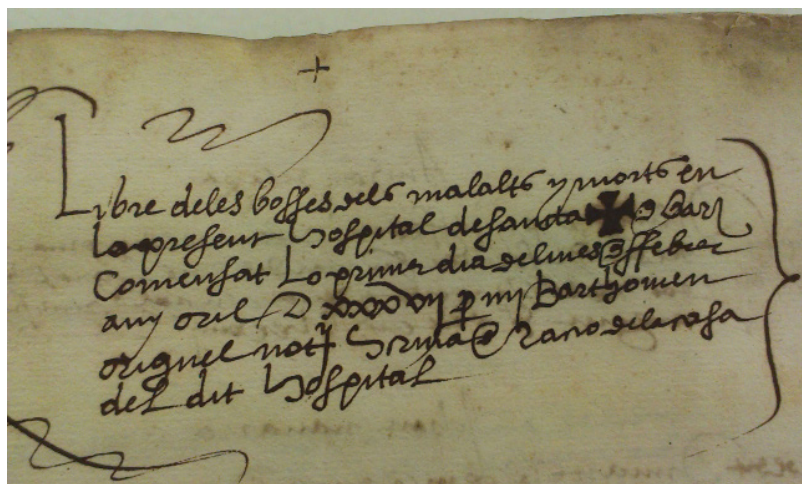 Libre deles bosses dels malalts y morts en
lo present hospital de sancta ✠ d Bar
Comensat lo primer dia del mes d ffebrer
any Mil D xxxxvij p mj Barthomeu
Miquel not scriva d racio dela casa
del dit hospital